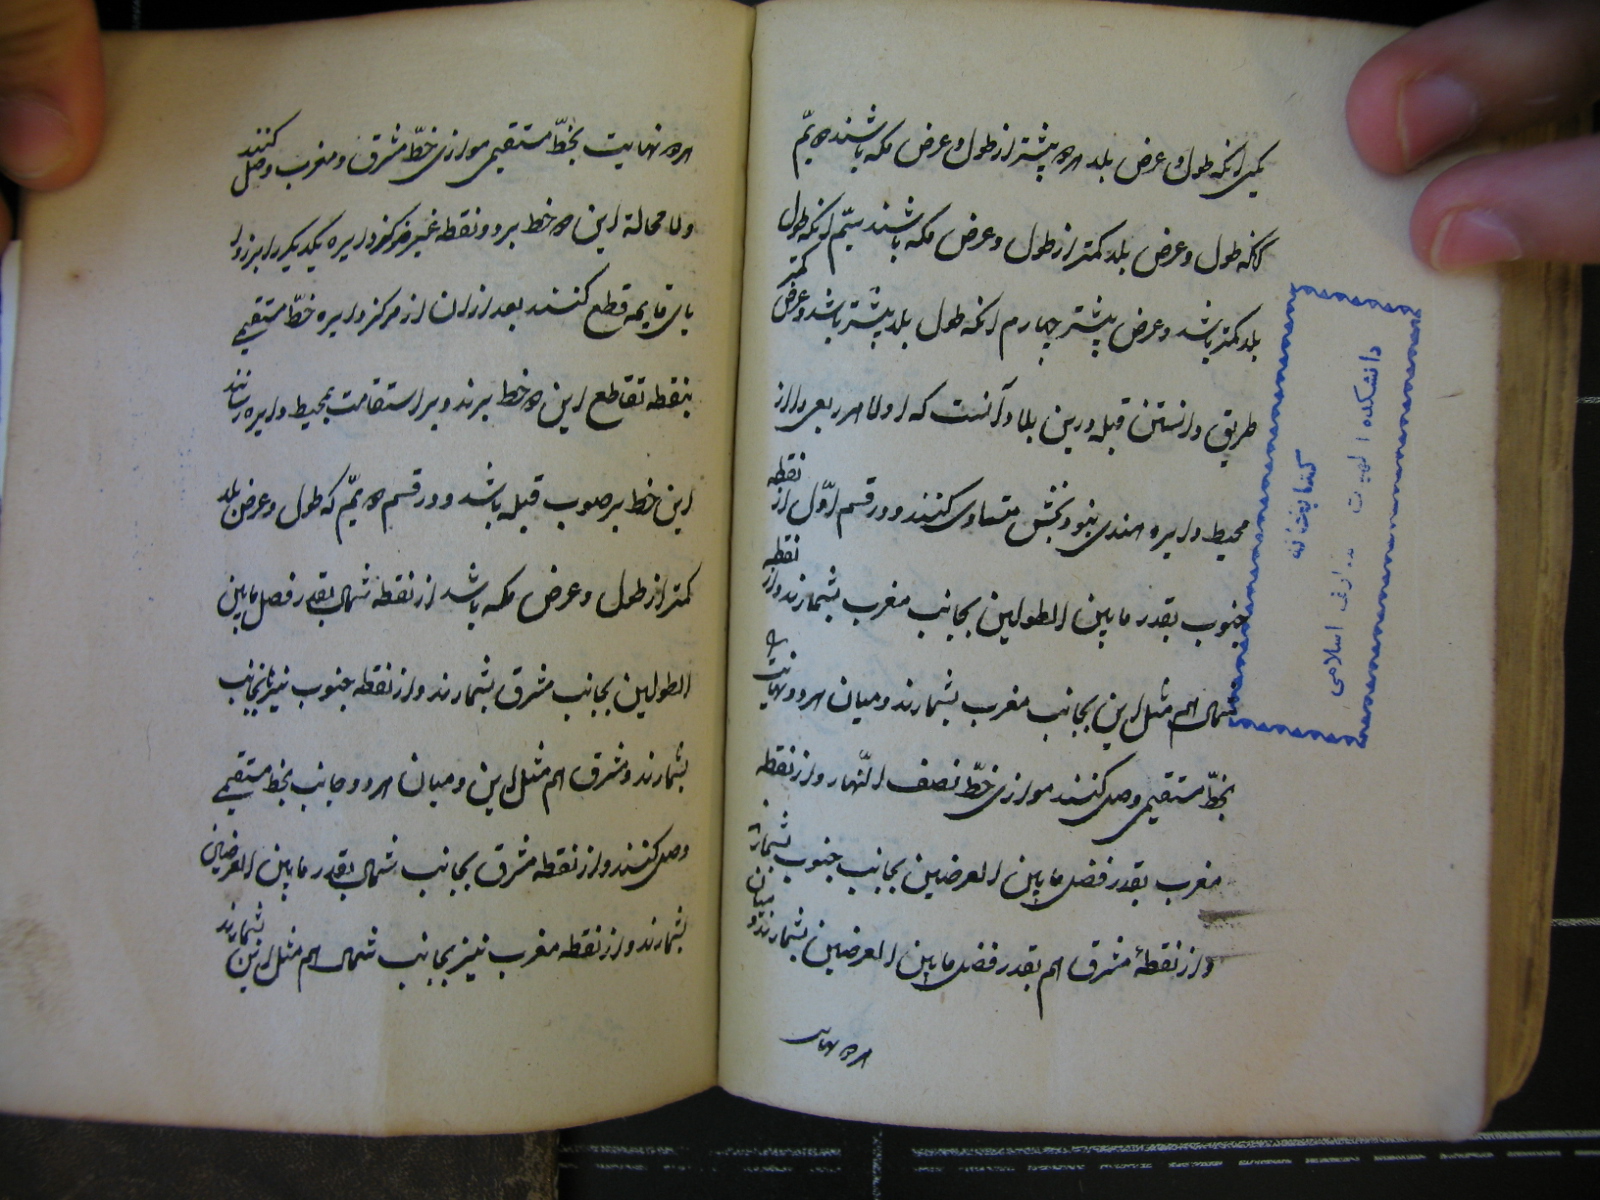 یکی آنکه طول و عرض بلد هر دو بیشتر از طول و عرض مکه باشند دویّم
آنکه طول و عرض بلد کمتر از طول و عرض مکه باشند سیّم آنکه طول
بلد کمتر باشد و عرض بیشتر چهارم آنکه طول بلد بیشتر باشد و عرض کمتر
طریق دانستن قبله درین بلاد آنست که اولا هر ربعی را از
محیط دایره هندی بنود بخش متساوی کنند و در قسم اوّل از نقطه
جنوب بقدر مابین الطولین بجانب مغرب بشمارند و از نقطه
شمال هم مثل این بجانب مغرب بشمارند و میان هر دو نهایت
بخطّ مستقیمی وصل کنند موازی خطّ نصف النّهار و از نقطه
مغرب بقدر فضل مابین العرضین بجانب جنوب بشمارند
و از نقطهٔ مشرق هم بقدر فضل مابین العرضین بشمارند و میان
هر دو نهایت
دانشکده الهیات و معارف اسلامی
کتابخانه
هر دو نهایت بخطّ مستقیمی موازی خطّ مشرق و مغرب وصل کنند
ولا محالة این دو خط بر دو نقطه غیر مرکز دایره یکدیگر را بر زوا
یای قایمه قطع کنند بعد از ان از مرکز دایره خطّ مستقیمی
بنقطه تقاطع این دو خط برند و بر استقامت بمحیط دایره رسانند
این خط بر صوب قبله باشد و در قسم دویّم که طول و عرض بلد
کمتر از طول و عرض مکه باشد از نقطه شمال بقدر فضل مابین
الطولین بجانب مشرق بشمارند و از نقطه جنوب نیز بجانب
بشمارند و مشرق هم مثل این و میان هر دو جانب بخط مستقیمی
وصل کنند و از نقطه مشرق بجانب شمال بقدر مابین العرضین
بشمارند و از نقطه مغرب نیز بجانب شمال هم مثل این بشمارند